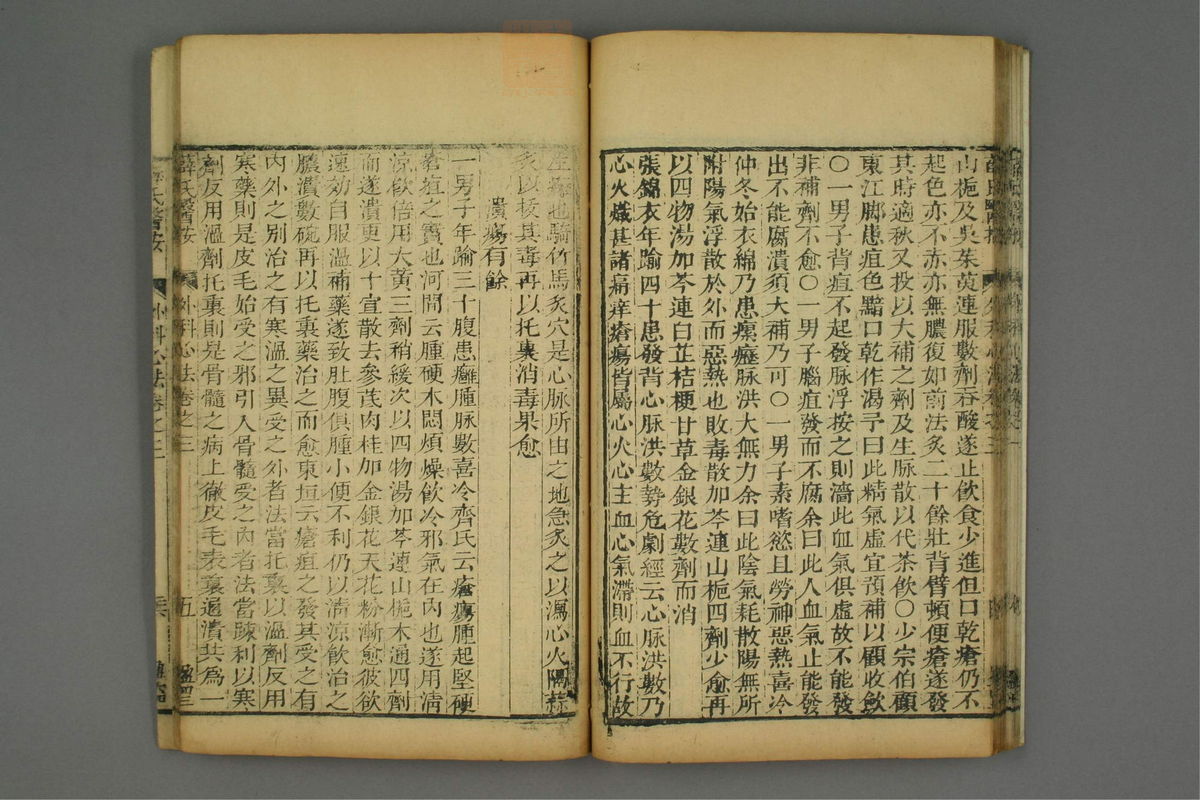 山梔及吳茱萸連服數劑吞酸遂止飲食少進但口乾瘡仍不
起色亦不赤亦無膿復如前法灸二十餘壯背臂頓便瘡遂發
其時適秋又投以大補之劑及生脉散以代茶飲○少宗伯顧
東江脚患疽色黯口乾作渴予曰此精氣虛宜預補以顧收斂
○一男子背疽不起發脉浮按之則濇此血氣俱虛故不能發
非補劑不愈○一男子腦疽發而不腐余曰此人血氣止能發
出不能腐潰須大補乃可○一男子素嗜慾且勞神惡熱喜冷
仲冬始衣綿乃患瘰癧脉洪大無力余曰此陰氣耗散陽無所
附陽氣浮散於外而惡熱也敗毒散加芩連山梔四劑少愈再
以四物湯加芩連白芷桔梗甘草金銀花數劑而消
張錦衣年踰四十患發背心脉洪數勢危劇經云心脉洪數乃
心火熾甚諸痛痒瘡瘍皆屬心火心主血心氣滯則血不行故
生癰也騎竹馬灸穴是心脉所由之地急灸之以瀉心火隔蒜
灸以拔其毒再以托裏消毒果愈
潰瘍有餘
一男子年踰三十腹患癰腫脉數喜冷齊氏云瘡瘍腫起堅硬
瘡疽之實也河間云腫硬木悶煩燥飲冷邪氣在內也遂用清
涼飲倍用大黃三劑稍緩次以四物湯加芩連山梔木通四劑
而遂潰更以十宣散去參芪肉桂加金銀花天花粉漸愈彼欲
速効自服溫補藥遂致肚腹俱腫小便不利仍以清涼飲治之
膿潰數碗再以托裏藥治之而愈東垣云瘡疽之發其受之有
內外之別治之有寒溫之異受之外者法當托裏以溫劑反用
寒藥則是皮毛始受之邪引入骨髓受之內者法當踈利以寒
劑反用溫劑托裏則是骨髓之病上徹皮毛表裏通潰共為一
薛氏醫按 外科心法卷之三 五